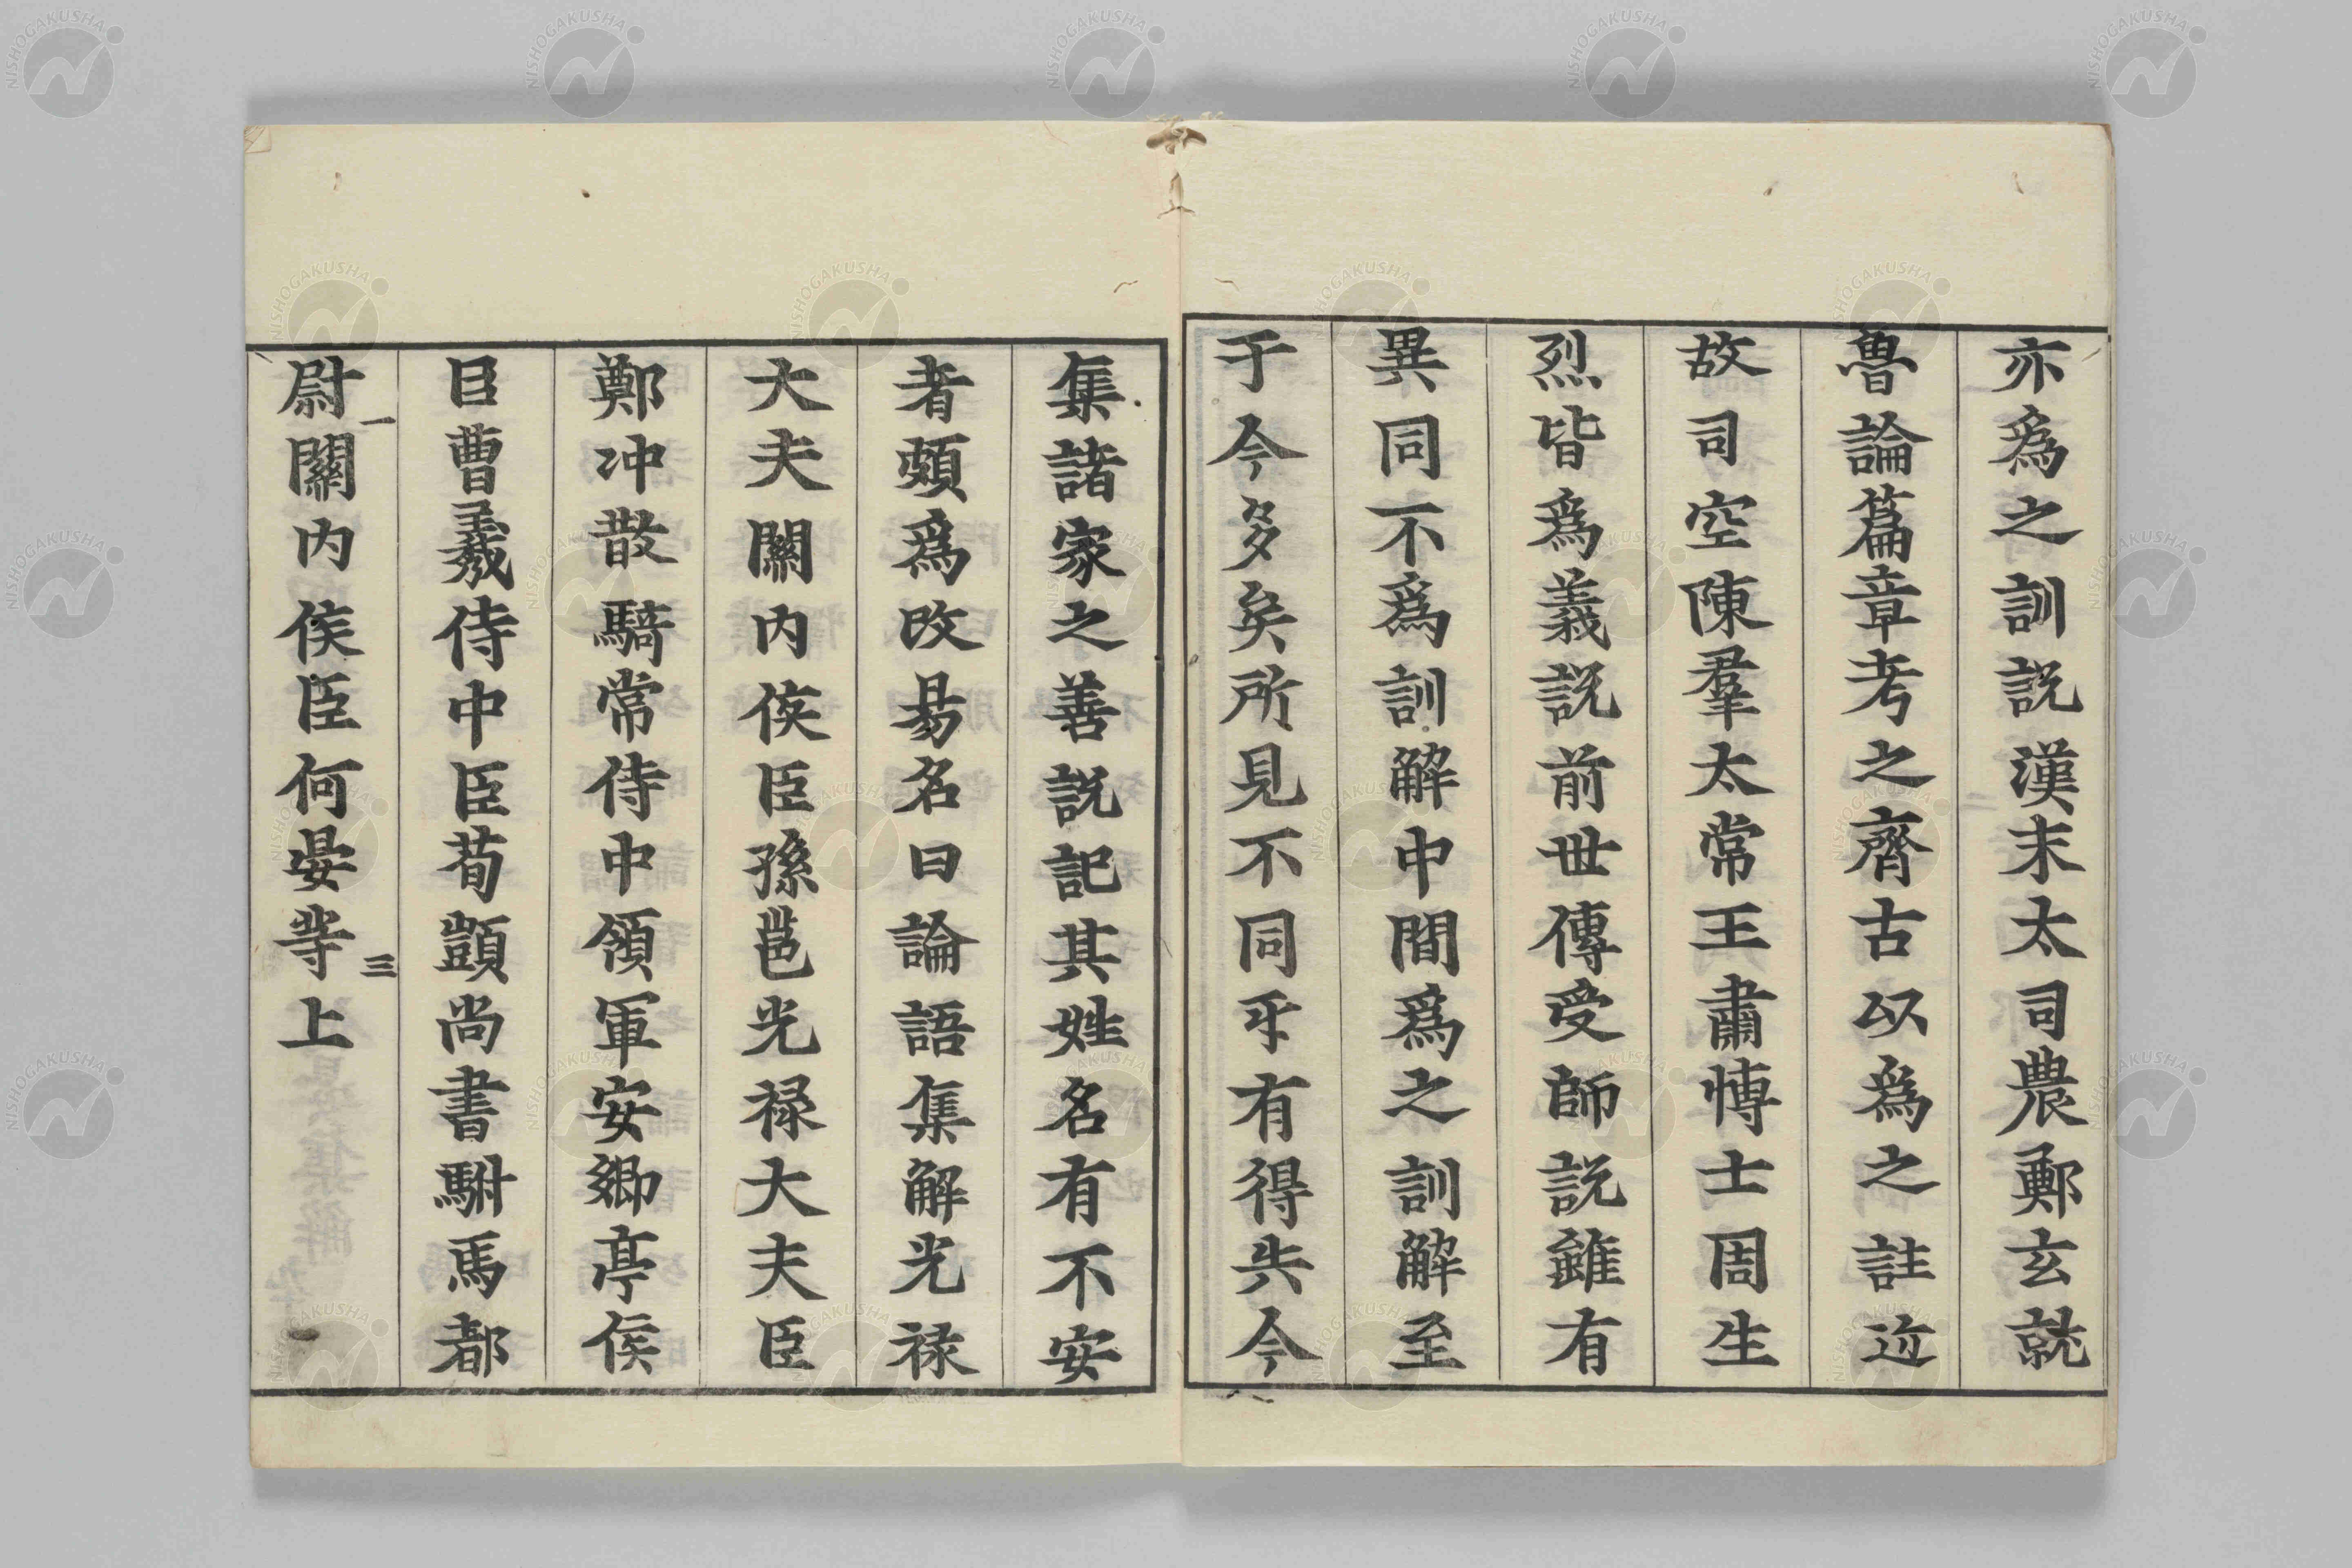 亦為之訓說漢末太司農鄭玄就
魯論篇章考之齊古以為之註近
故司空陳羣太常王肅博士周生
烈皆為義說前世傳受師說雖有
異同不為訓解中間為之訓解至
于今多矣所見不同乎有得失今
集諸家之善說記其姓名有不安
者頗為改易名曰論語集解光禄
大夫關內侯臣孫邕光禄大夫臣
鄭冲散騎常侍中領軍安鄉亭侯
臣曹羲侍中臣荀顗尚書駙馬都
尉關內侯臣何晏等上
一
三
NISHOGAKUSHA